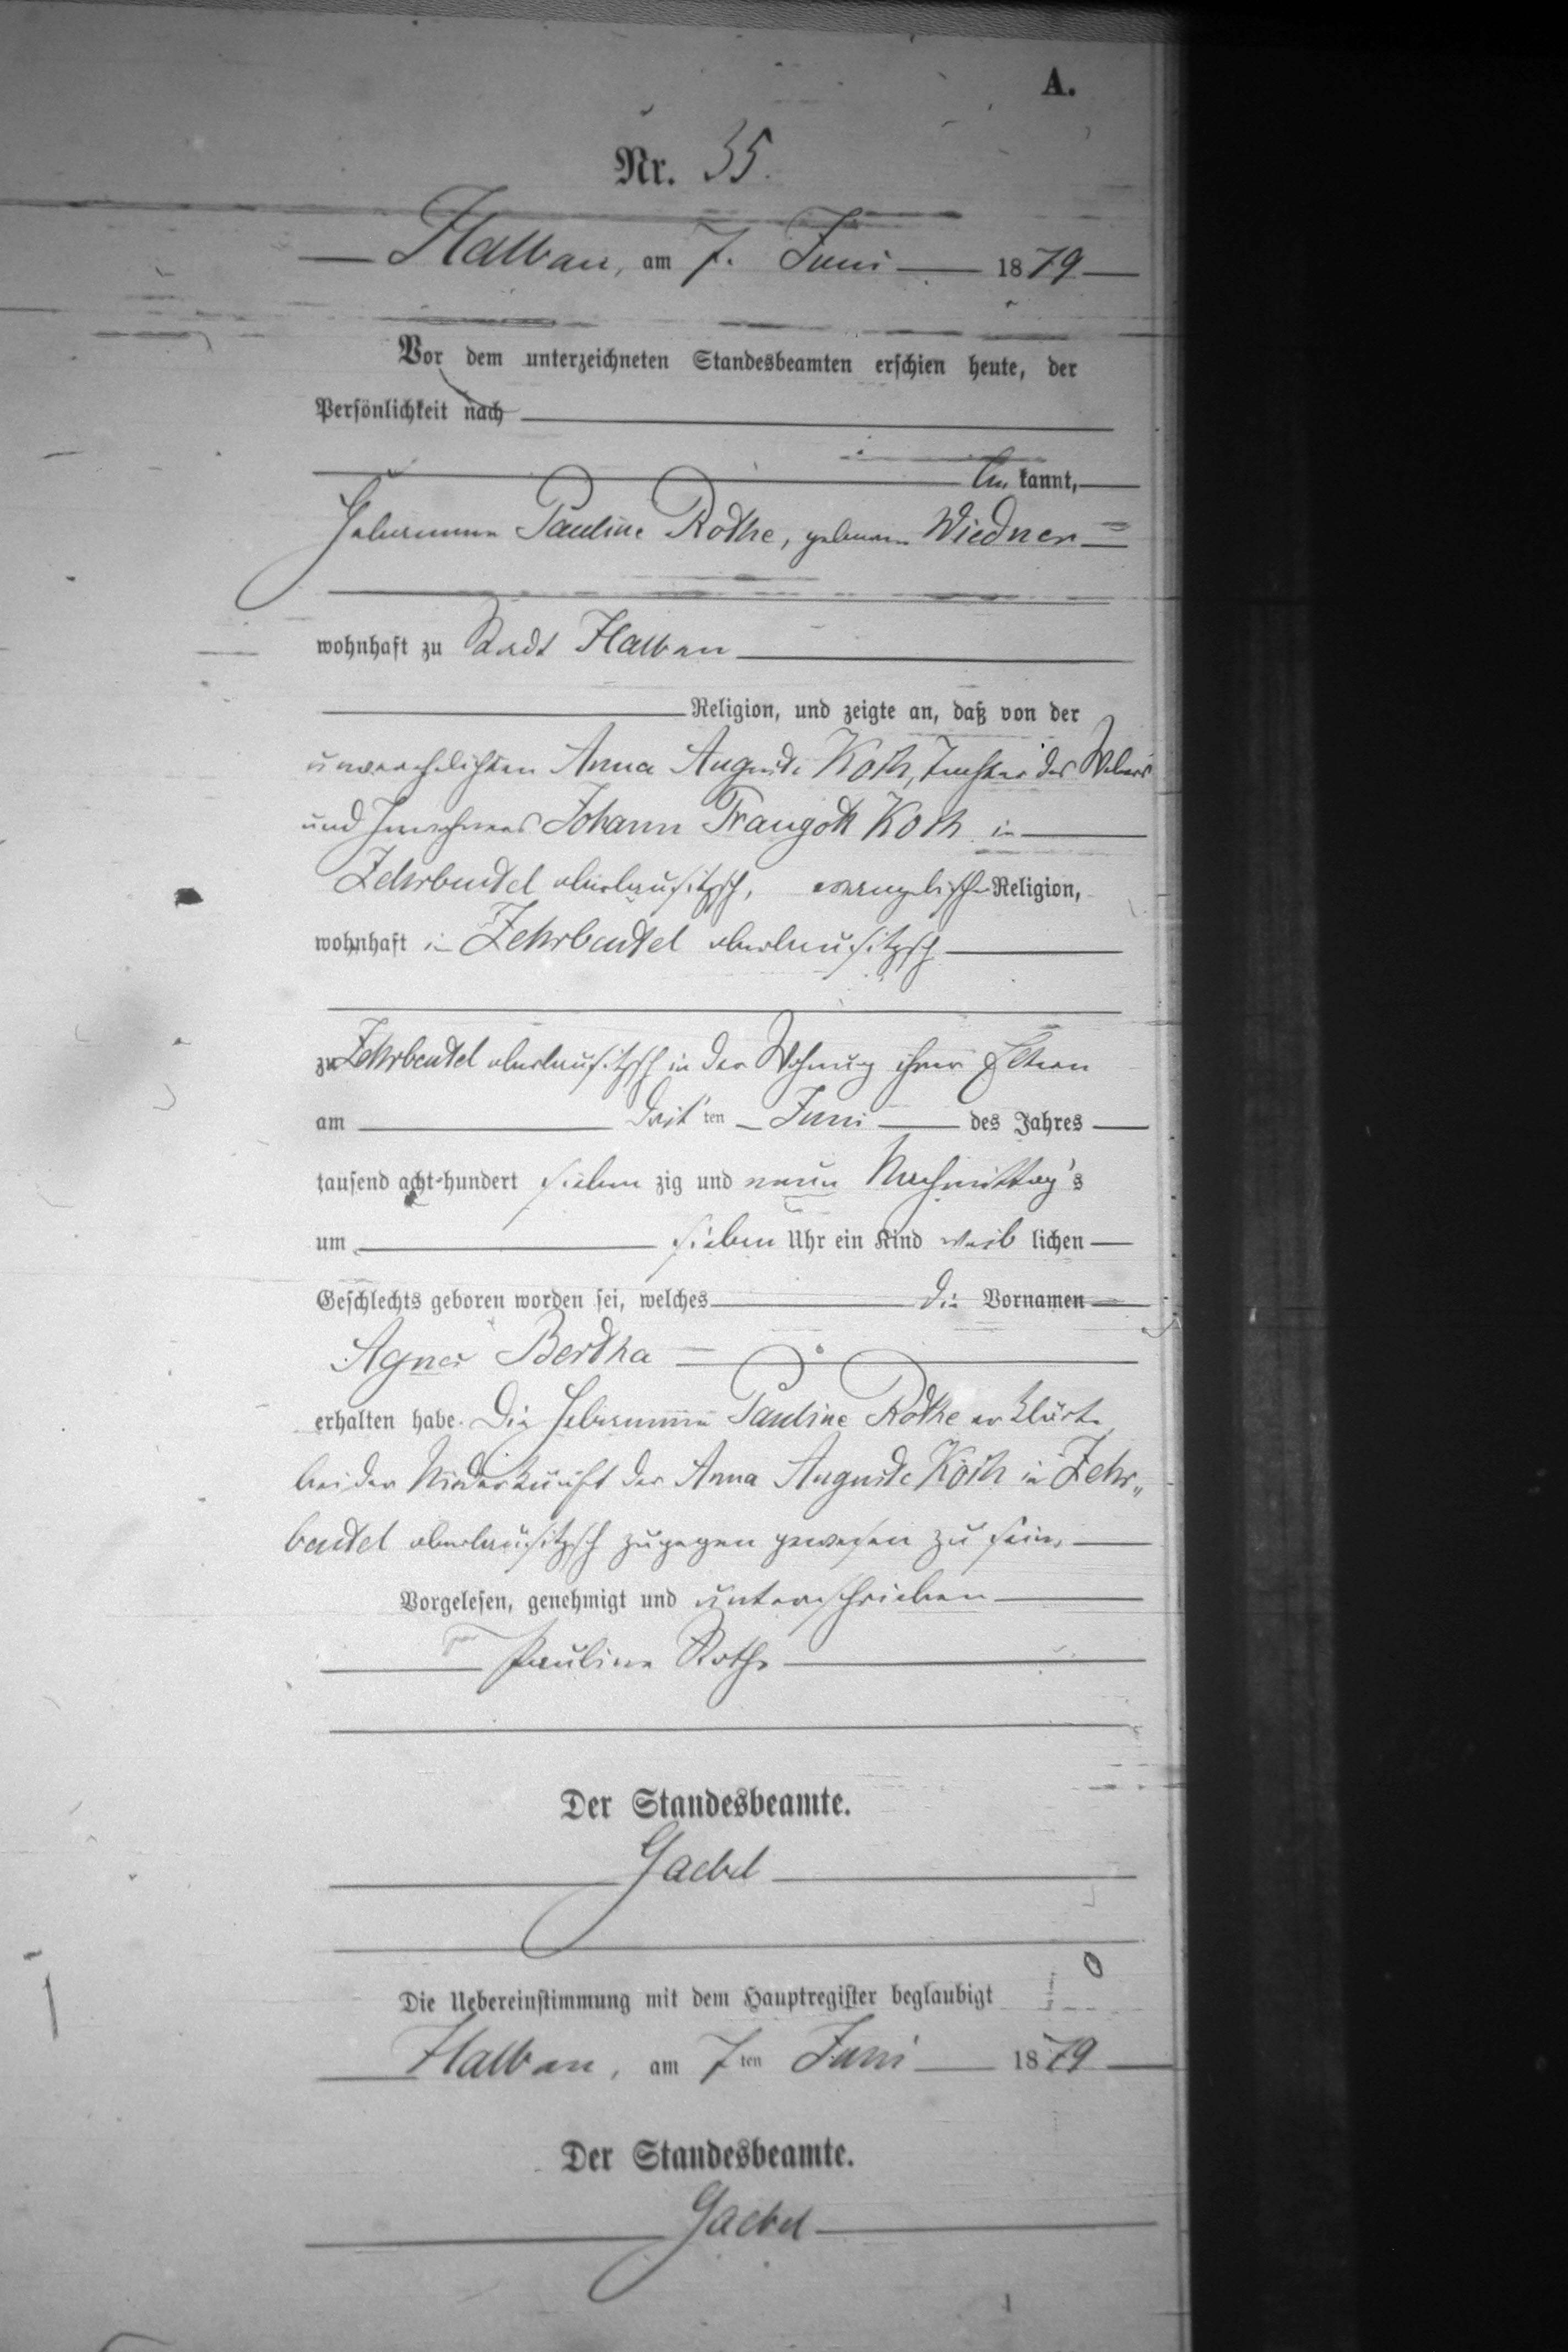 A.
Nr. 35.
Halbau, am 7. Juni 1879
Vor dem unterzeichneten Standesbeamten erschien heute, der
Persönlichkeit nach
be kannt,
Hebamme Pauline Rothe, geborene Wiedner
wohnhaft zu Stadt Halbau
Religion, und zeigte an, daß von der
unverehelichten Anna Auguste Koth, Tochter des Webers
und Inwohners Johann Traugott Koth in
Zehrbeutel oberlausitzsch, evangelischer Religion,
wohnhaft in Zehrbeutel oberlausitzsch
zu Zehrbeutel oberlausitzsch in der Wohnung ihrer Eltern
am drit ten Juni des Jahres
tausend acht-hundert sieben zig und neun Nachmittag's
um sieben Uhr ein Kind weib lichen
Geschlechts geboren worden sei, welches die Vornamen
Agnes Bertha
erhalten habe. Die Hebamme Pauline Rothe erklärte
bei der Niederkunft der Anna Auguste Koth in Zehr„
beutel oberlausitzsch zugegen gewesen zu sein.
Vorgelesen, genehmigt und unterschrieben
Pauline Rothe
Der Standesbeamte.
Gaebel
Die Uebereinstimmung mit dem Hauptregister beglaubigt
Halbau, am 7ten Juni 1879
Der Standesbeamte.
Gaebel